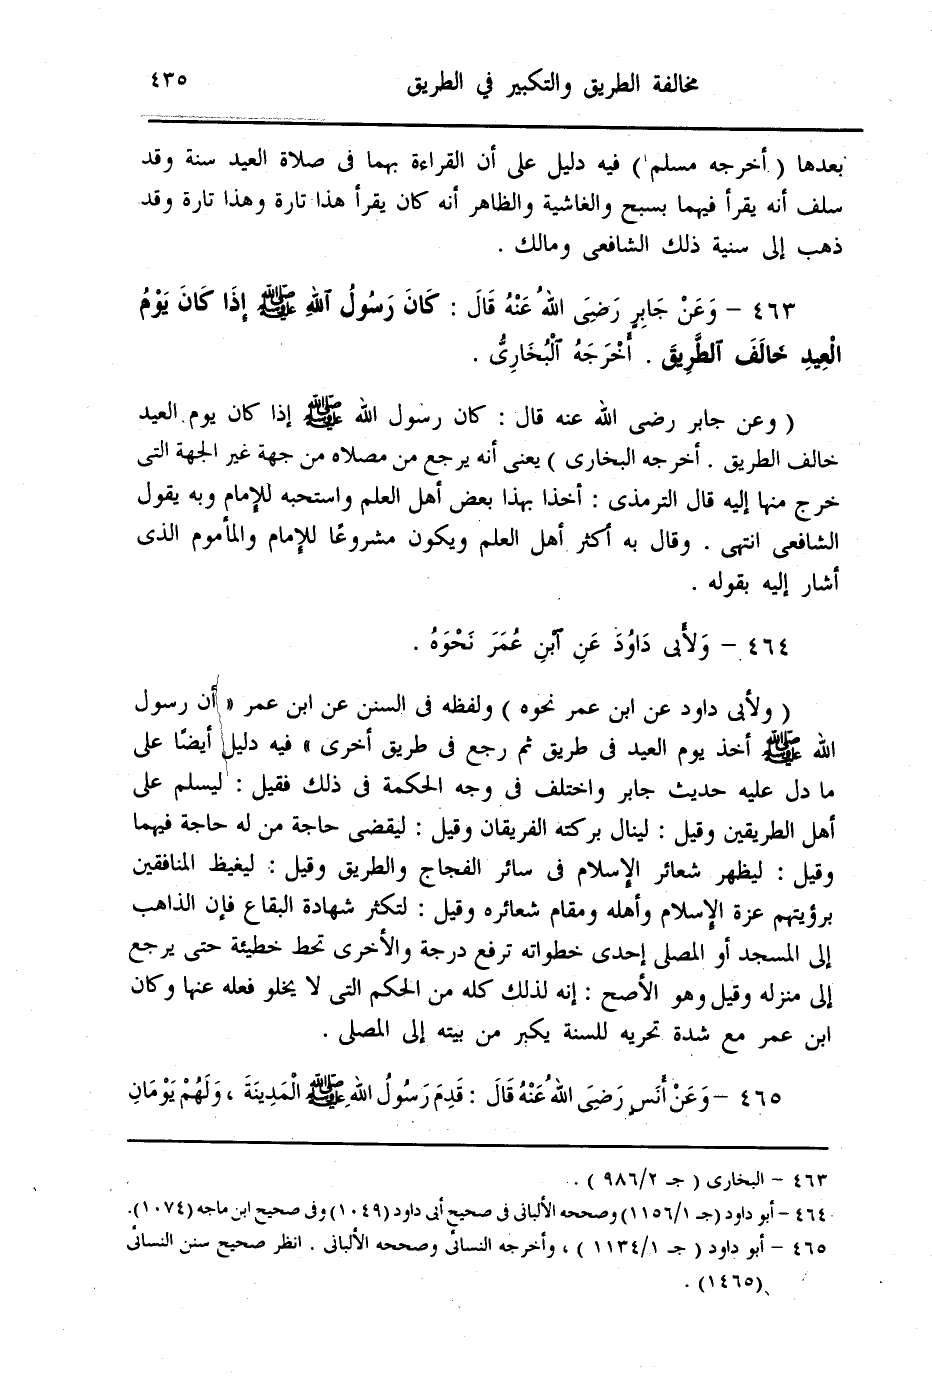 مخالفة الطريق والتكبير في الطريق ٤٣٥
بعدها ( أخرجه مسلم ) فيه دليل على أن القراءة بهما فى صلاة العيد سنة وقد
سلف أنه يقرأ فيهما بسبح والغاشية والظاهر أنه كان يقرأ هذا تارة وهذا تارة وقد
ذهب إلى سنية ذلك الشافعى ومالك .
٤٦٣ – وَعَنْ جَابِرٍ رَضِىَ اللهُ عَنْهُ قَالَ : كَانَ رَسُولُ ٱللهِ ﷺ إِذَا كَانَ يَوْمُ
الْعِيدِ خَالَفَ ٱلطَّرِيقَ . أَخْرَجَهُ ٱلْبُخَارِىُّ .
( وعن جابر رضى الله عنه قال : كان رسول الله ﷺ إذا كان يوم العيد
خالف الطريق . أخرجه البخارى ) يعنى أنه يرجع من مصلاه من جهة غير الجهة التى
خرج منها إليه قال الترمذى : أخذا بهذا بعض أهل العلم واستحبه للإمام وبه يقول
الشافعى انتهى . وقال به أكثر أهل العلم ويكون مشروعًا للإمام والمأموم الذى
أشار إليه بقوله .
٤٦٤ – وَلأَبى دَاوُدَ عَنِ ٱبْنِ عُمَرَ نَحْوَهُ .
( ولأبى داود عن ابن عمر نحوه ) ولفظه فى السنن عن ابن عمر « أن رسول
الله ﷺ أخذ يوم العيد فى طريق ثم رجع فى طريق أخرى » فيه دليل أيضًا على
ما دل عليه حديث جابر واختلف فى وجه الحكمة فى ذلك فقيل : ليسلم على
أهل الطريقين وقيل : لينال بركته الفريقان وقيل : ليقضى حاجة من له حاجة فيهما
وقيل : ليظهر شعائر الإسلام فى سائر الفجاج والطريق وقيل : ليغيظ المنافقين
برؤيتهم عزة الإسلام وأهله ومقام شعائره وقيل : لتكثر شهادة البقاع فإن الذاهب
إلى المسجد أو المصلى إحدى خطواته ترفع درجة والأخرى تحط خطيئة حتى يرجع
إلى منزله وقيل وهو الأصح : إنه لذلك كله من الحكم التى لا يخلو فعله عنها وكان
ابن عمر مع شدة تحريه للسنة يكبر من بيته إلى المصلى .
٤٦٥ – وَعَنْ أَنَسٍ رَضِىَ اللهُ عَنْهُ قَالَ : قَدِمَ رَسُولُ اللهِ ﷺ الْمَدِينَةَ ، وَلَهُمْ يَوْمَانِ
٤٦٣ – البخارى ( جـ ٩٨٦/٢ ) .
٤٦٤ – أبو داود (جـ ١١٥٦/١) وصححه الألبانى فى صحيح أبى داود (١٠٤٩) وفى صحيح ابن ماجه (١٠٧٤).
٤٦٥ – أبو داود ( جـ ١١٣٤/١ ) ، وأخرجه النسائى وصححه الألبانى . انظر صحيح سنن النسائى
(١٤٦٥) .